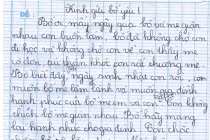 Đề
Kính gửi bố yêu!
Bố ơi mấy ngày qua bố và mẹ giận
nhau con buồn lắm, bố đã không cho con
đi học và không cho con về con thấy mẹ
cô đơn, tủi thân khóc con nà thương mẹ
Bố biết đấy, ngày sinh nhật con, con
muốn bố mẹ làm lành và muốn gia đình
hạnh phúc của bố mẹ em và con. Con không
thích bố mẹ giận nhau. Bố hãy mang
lại hạnh phúc cho gia đình. Con chúc